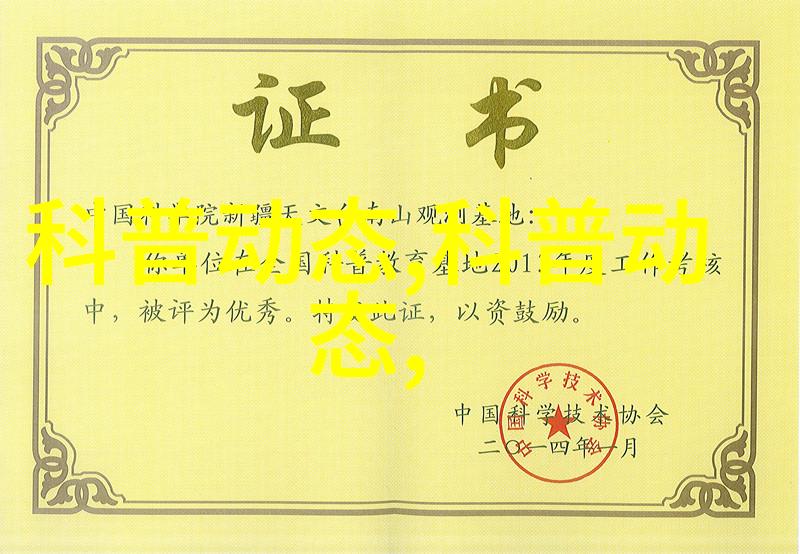 证 书
中国科学院新疆天文台南山观测基地:
科普动态,科普动
态,
你单位在全国科普教育基地2013年度工作考核
中，被评为优秀。特 此证，以资鼓励。
中国科学技术协会
中国科学技术协会
二〇一四年一月